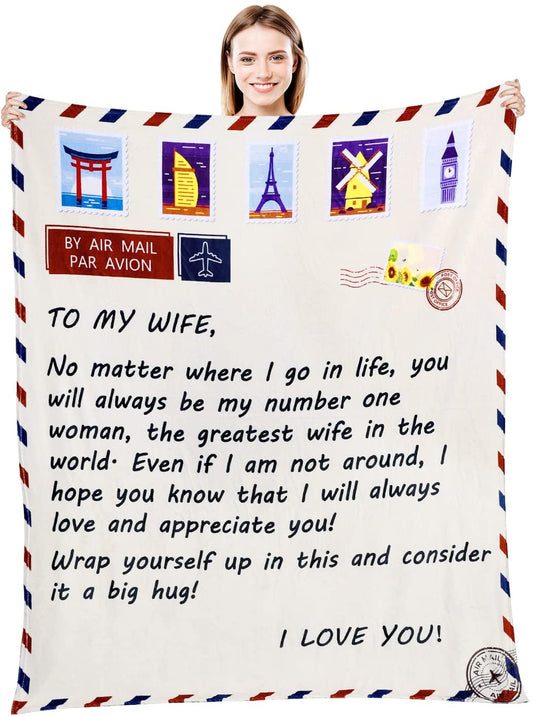 BY AIR MAIL
PAR AVION
POST OFFICE
TO MY WIFE,
No matter where I go in life, you
will always be my number one
woman, the greatest wife in the
world. Even if I am not around, I
hope you know that I will always
love and appreciate you!
Wrap yourself up in this and consider
it a big hug!
I LOVE YOU!
AIR MAIL